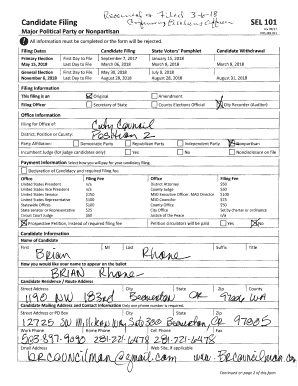 Received & Filed 3-6-18
Candidate Filing
SEL 101
Major Political Party or Nonpartisan
All information must be completed or the form will be rejected.
Filing Dates Candidate Filing State Voters' Pamphlet Candidate Withdrawal
Primary Election First Day to File September 7, 2017 January 15, 2018
May 15, 2018 Last Day to File March 06, 2018 March 8, 2018 March 9, 2018
General Election First Day to File May 30, 2018 July 9, 2018
November 6, 2018 Last Day to File August 28, 2018 August 28, 2018 August 31, 2018
Filing Information
This filing is an Original Amendment
Filing Officer Secretary of State County Elections Official City Recorder (Auditor)
Office Information
Filing for Office of: City Council
District, Position or County: Position 2
Party Affiliation: Democratic Party Republican Party Independent Party Nonpartisan
Incumbent Judge (for judge candidates only) Yes No Nondisclosure on file
Payment Information Select how you will pay for your candidacy filing.
Declaration of Candidacy and required filing fee
Office Filing Fee Office Filing Fee
United States President n/a District Attorney $50
United States Vice President n/a County Judge $50
United States Senator $150 MSD Executive Officer, MSD Auditor $100
United States Representative $100 MSD Councilor $25
Statewide Offices $100 County Office $50
State Senator or Representative $25 City Office Set by charter or ordinance
Circuit Court Judge $50 Justice of the Peace n/a
Prospective Petition, Instead of required filing fee Petition circulators will be paid Yes No
Candidate Information
Name of Candidate
First MI Last Suffix Title
Brian Rhone
How would you like your name to appear on the ballot
BRIAN Rhone
Candidate Residence / Route Address
Street Address City State Zip County
1190 NW 183rd Beaverton OR 97006 WA
Candidate Mailing Address and Contact Information Only one phone number is required.
Street Address or PO Box City State Zip
12725 SW Millikan Way Suite 300 Beaverton, OR 97005
Work Phone Home Phone Cell Phone Fax
503-897-9090 281-221-6478 281-221-6478
Email Address Web Site, if applicable
brcouncilman@gmail.com www.Brcouncilman.com
Continued on page 2 of this form